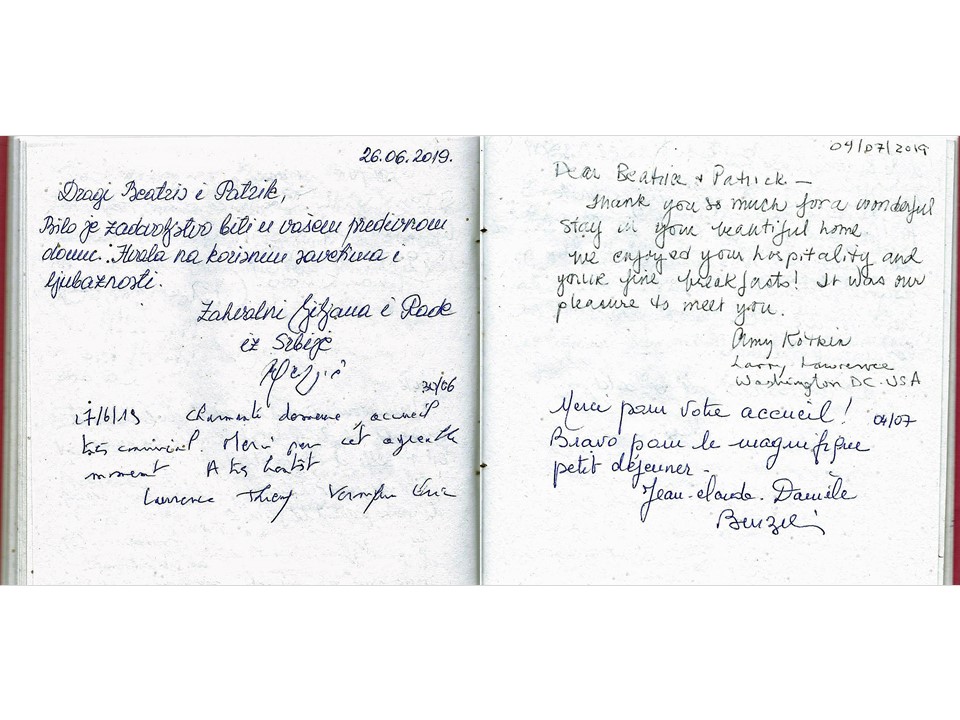 26.06.2019.
Dragi Beatris i Patrik,
Bilo je zadovoljstvo biti u vašem predivnom
domu. Hvala na korisnim savetima i
ljubaznosti.
Zahvalni Ljiljana i Rade
iz Srbije
30/06
17/6/19 Charmante demeure, accueil
très convivial. Merci pour cet agréable
moment A très bientôt
Laurence Thierry
04/07/2019
Dear Beatrice & Patrick —
Thank you so much for a wonderful
stay in your beautiful home.
We enjoyed your hospitality and
your fine breakfasts! It was our
pleasure to meet you.
Amy Kotkin
Larry Lawrence
Washington DC. USA
Merci pour votre accueil! 04/07
Bravo pour le magnifique
petit déjeuner.
Jean-Claude. Danièle